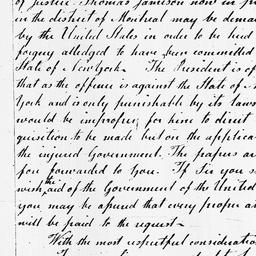 of Justice. Thomas Jamison now in
in the district of Montreal may be
by the United States in order to be tried
forgery alledged to have been committed
State of New York. The President is of
that as the offence is against the State of
York and is only punishable by its laws
would be improper for him to direct
quisition to be made but on the applica
the injured Government. The papers are
fore forwarded to you. If Sir you
wish the aid of the Government of the United
you may be assured that every proper
will be paid to the request—
With the most respectful consideration